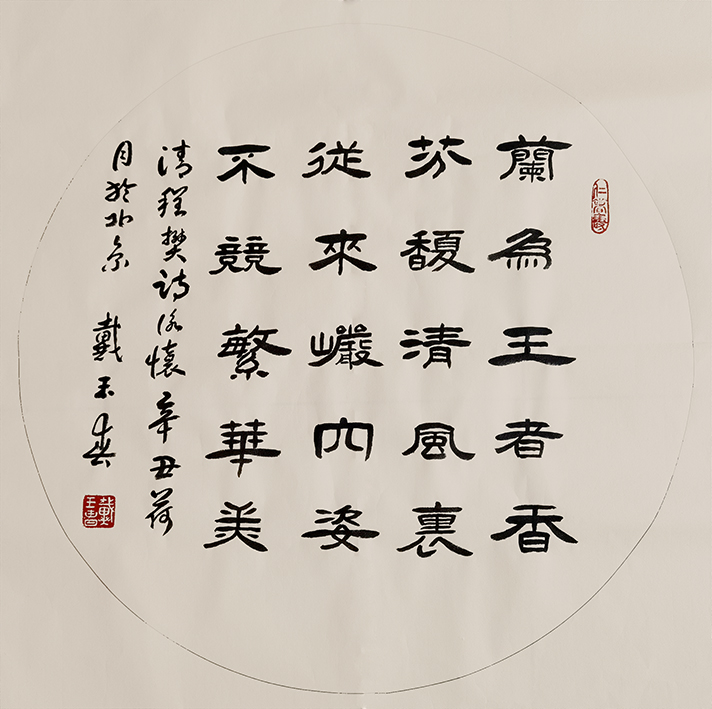 蘭為王者香
芬馥清風裏
從來巖內姿
不競繁華美
清程樊詩詠懷辛丑荷
月於北京 戴玉春